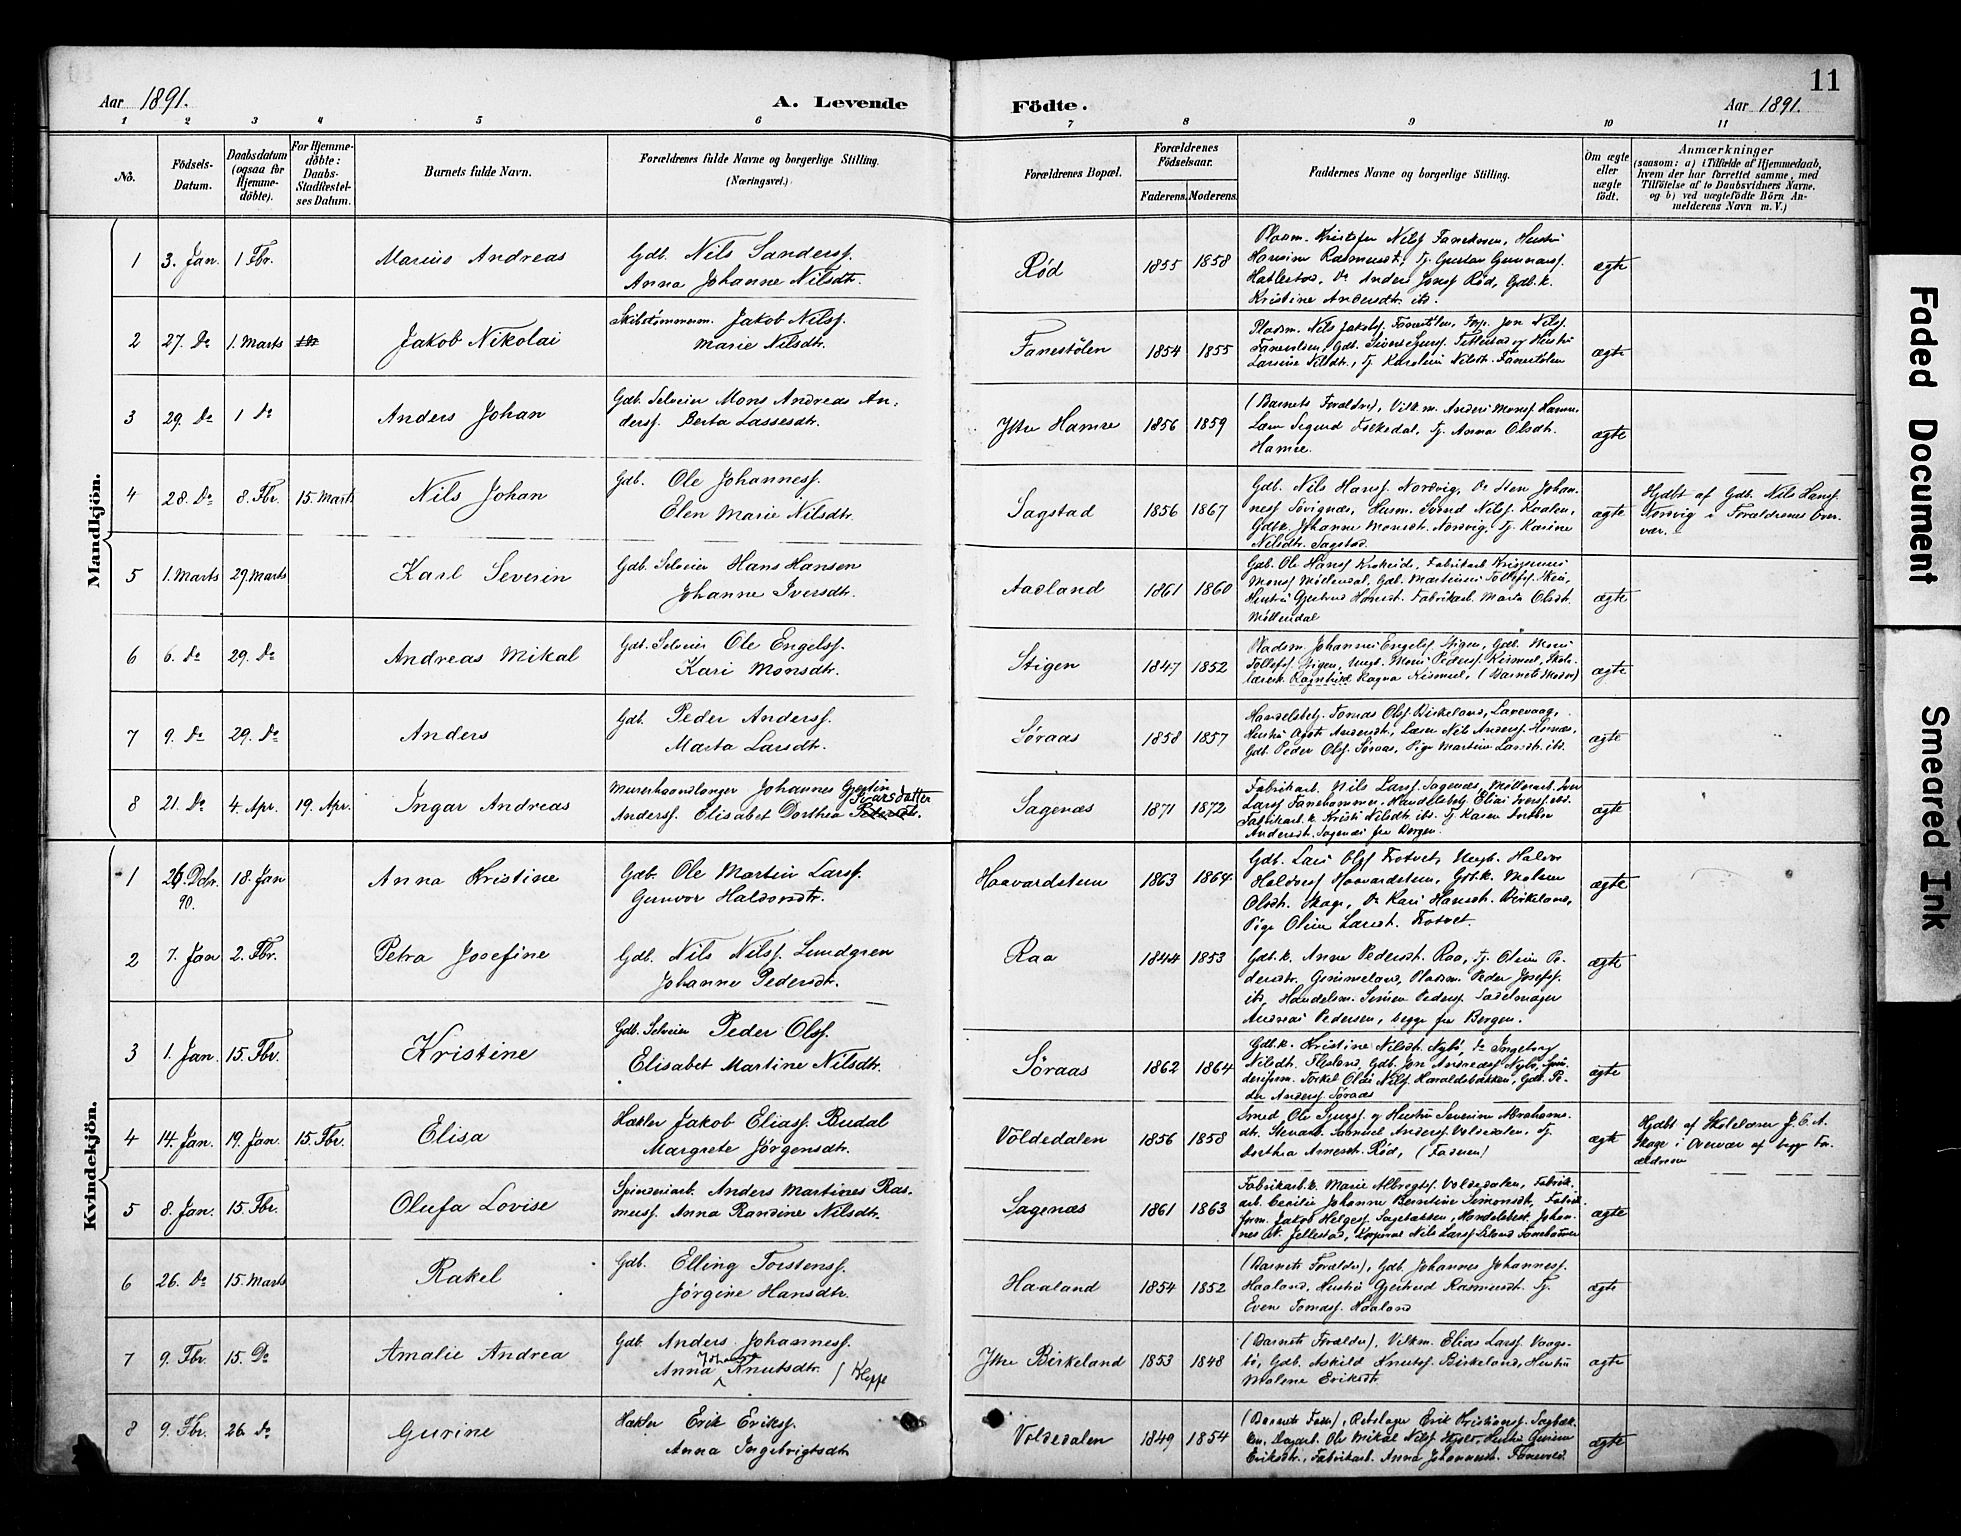 11
Aar 1891.
A. Levende Födte.
Aar 1891.
1 2 3 4 5 6 7 8 9 10 11
No.
Födsels-Datum.
Daabsdatum (ogsaa for Hjemme-döbte).
For Hjemme-döbte: Daabs-Stadfæstel-ses Datum.
Barnets fulde Navn.
Forældrenes fulde Navne og borgerlige Stilling.
(Næringsvei.)
Forældrenes Bopæl.
Forældrenes Födselsaar.
Faderens. Moderens.
Faddernes Navne og borgerlige Stilling.
Om ægte eller uægte födt.
Anmærkninger
(saasom: a) i Tilfælde af Hjemmedaab,
hvem der har forrettet samme, med
Tilföielse af to Daabsvidners Navne,
og b) ved uægtefödte Börn An-
melderens Navn m. V.)
Mandkjön.
1 3. Jan. 1 Fbr. Marius Andreas
Gdb. Nils Sandersf.
Anna Johanne Nilsdtr.
Rød 1855 1858
Pladsm. Kristofer Nilsf. Hustru
Hansine Rasmusdt., Tj. Gustav Gunnarsf.
Hatlestad, Do Anders Jonsf Rød, Gdb.k.
Kristine Andersdtr. ibd.
ægte
2 27. Do 1. Marts Jakob Nikolai
Skibstømmerm. Jakob Nilsf.
Marie Nilsdtr.
Fanestølen 1854 1855
Pladsm. Nils Jakobsf. Fanestølen, Jon Nilsf.
Larsine Nilsdtr., Tj. Karoline Nilsdt. Fanestølen
ægte
3 29. Do 1 Do Anders Johan
Gdb. Selveier Mons Andreas An-
dersf. Berta Lassesdtr.
Ytre Hamre 1856 1859
(Barnets Forældre), Anders Monsf. Hamre,
Sigurd Tj. Anna Olsdtr.
Hamre.
ægte
4 28. Do 8. Fbr. 15. Marts Nils Johan
Gdb. Ole Johannesf.
Elen Marie Nilsdtr.
Sagstad 1856 1867
Gdb. Nils Hansf. Nordvig, Do Sten Johan-
nesf Søvignæs, Husm. Svend Nilsf. Kaalen,
Gdb.k. Johanne Monsdt. Nordvig, Tj. Karine
Nilsdtr. Sagstad.
ægte
Hjdbt af Gdb. Nils Hansf.
Nordvig i Forældrenes Over-
vær.
5 1. Marts 29. Marts Karl Severin
Gdb. Selveier Hans Hansen
Johanne Iversdtr.
Aadland 1861 1860
Gdb. Ole Hansf Krokeide, Fabrikarb. Krispinus
Monsf Møllendal, Gdb. Martinus Tollefsf. Skei,
Hustru Gjertrud Hansdt. Fabrikarb. Marta Olsdt.
Møllendal
ægte
6 6. Do 29. Do Andreas Mikal
Gdb. Selveier Ole Engelsf.
Kari Monsdtr.
Stigen 1847 1852
Pladsm Johannes Engelsf. Stigen, Gdb. Mons
Tollefsf. Stigen, Ungk. Mons Pedersf. Kismul, Skole-
lærersk. Ragnhild Ragna Kismul, (Barnets Moder)
ægte
7 9. Do 29. Do Anders
Gdb. Peder Andersf.
Marta Larsdtr.
Søraas 1858 1857
Handelsbetj. Tomas Olsf Birkeland, Larevaag,
Hustru Agate Andersdt., Lærer Nils Andersf.
Gdb. Peder Olsf. Søraas, Pige Martine Larsdt. ibd.
ægte
8 21. Do 4 Apr. 19. Apr. Ingar Andreas
Murerhaandlanger Johannes Gjertin
Andersf. Elisabet Dorthea Ivarsdatter
Sagenæs 1871 1872
Fabrikarb. Nils Larsf. Sagenæs, Møllerarb. Iver
Larsf Fanehammer, Handelsbetj Elias
Fabrikarb.k. Kristi Nilsdt. ibd. Tj Karen Dorthea
Andersdt. Sagenæs fra Bergen.
ægte
Kvindekjön.
1 26. Dcbr. 90. 18. Jan Anna Kristine
Gdb. Ole Martin Larsf.
Gunvor Haldorsdtr.
Haavardstun 1863 1864
Gdb. Lars Olsf Trotvet, Ungk. Haldor
Haldorsf Haavardstun, Gdb.k. Malene
Olsdt. Skage, Do Kari Hansdt. Birkeland,
Pige Oline Larsdt. Trotvet.
ægte
2 7. Jan 2. Fbr. Petra Josefine
Gdb. Nils Nilsf. Lundgren
Johanne Pedersdtr.
Raa 1844 1853
Gdb.k. Anne Pedersdt. Raa, Tj. Oline Pe-
dersdtr. Grimmeland, Pladsm. Peder Josefsf.
ibd, Handelsm. Simon Pedersf. Sadelmager
Andreas Pedersen, begge fra Bergen.
ægte
3 1. Jan 15. Fbr. Kristine
Gdb. Selveier Peder Olsf.
Elisabet Martine Nilsdtr.
Søraas 1862 1864
Gdb.k. Kristine Nilsdt. Nybø, Do Ingeborg
Nilsdt. Flesland, Gdb. Jon Andreasf Nybø, Spin-
deriform. Torkel Olai Nilsf. Haraldsbakken, Gdb. Pe-
der Andersf. Søraas
ægte
4 14. Jan. 19. Jan. 15. Fbr. Elisa
Hækler Jakob Eliasf. Budal
Margrete Jörgensdtr.
Voldedalen 1856 1858
Smed Ole Sjursf. og Hustru Severine Abrahams-
dt. Stenarb. Samuel Andersf. Voldedalen, Tj.
Dorthea Arnesdt. Rød, (Faderen)
ægte
Hjdbt af Skolelærer J. C. A.
Skage i Overvær af begge For-
ældrene
5 8. Jan. 15. Fbr. Olufa Lovise
Spinderiarb. Anders Martines Ras-
musf. Anna Randine Nilsdtr.
Sagenæs 1861 1863
Fabrikarb.k. Marie Albregtsf. Voldedalen, Fabrik-
arb. Cecilie Johanne Berntine Simonsdt, Fabrik-
form. Jakob Helgesf. Sagebakken, Handelsbest. Johan-
nes N. Jellestad, Korporal Nils Larsf. Fanehammer
ægte
6 26. Do 15. Marts Rakel
Gdb. Elling Torstensf.
Jörgine Hansdtr.
Haaland 1854 1852
(Barnets Forældre), Gdb. Johannes Johannesf.
Haaland, Hustru Gjertrud Rasmusdt. Tj.
Even Tomasf. Haaland
ægte
7 9. Fbr. 15. Do Amalie Andrea
Gdb. Anders Johannesf.
Anna Johanna Knutsdtr. / Kleppe
Ytre Birkeland 1853 1848
(Barnets Forældre), Vilkm. Elias Larsf. Vaags-
bø, Gdb. Askild Knutsf. Birkeland, Hustru
Malene Eriksdt.
ægte
8 9. Fbr. 26 Do Gurine
Hækler Erik Eriksf.
Anna Ingebrigtsdtr
Voldedalen 1849 1854
(Barnets Fader), Rebslager Erik Kristiansf. Sagbak-
ken, Dagarb. Ole Mikal Nilsf. Hustru Gurine
Eriksdtr., Fabrikarb. Anna Johannesdt.
ægte
Faded Document
Smeared Ink